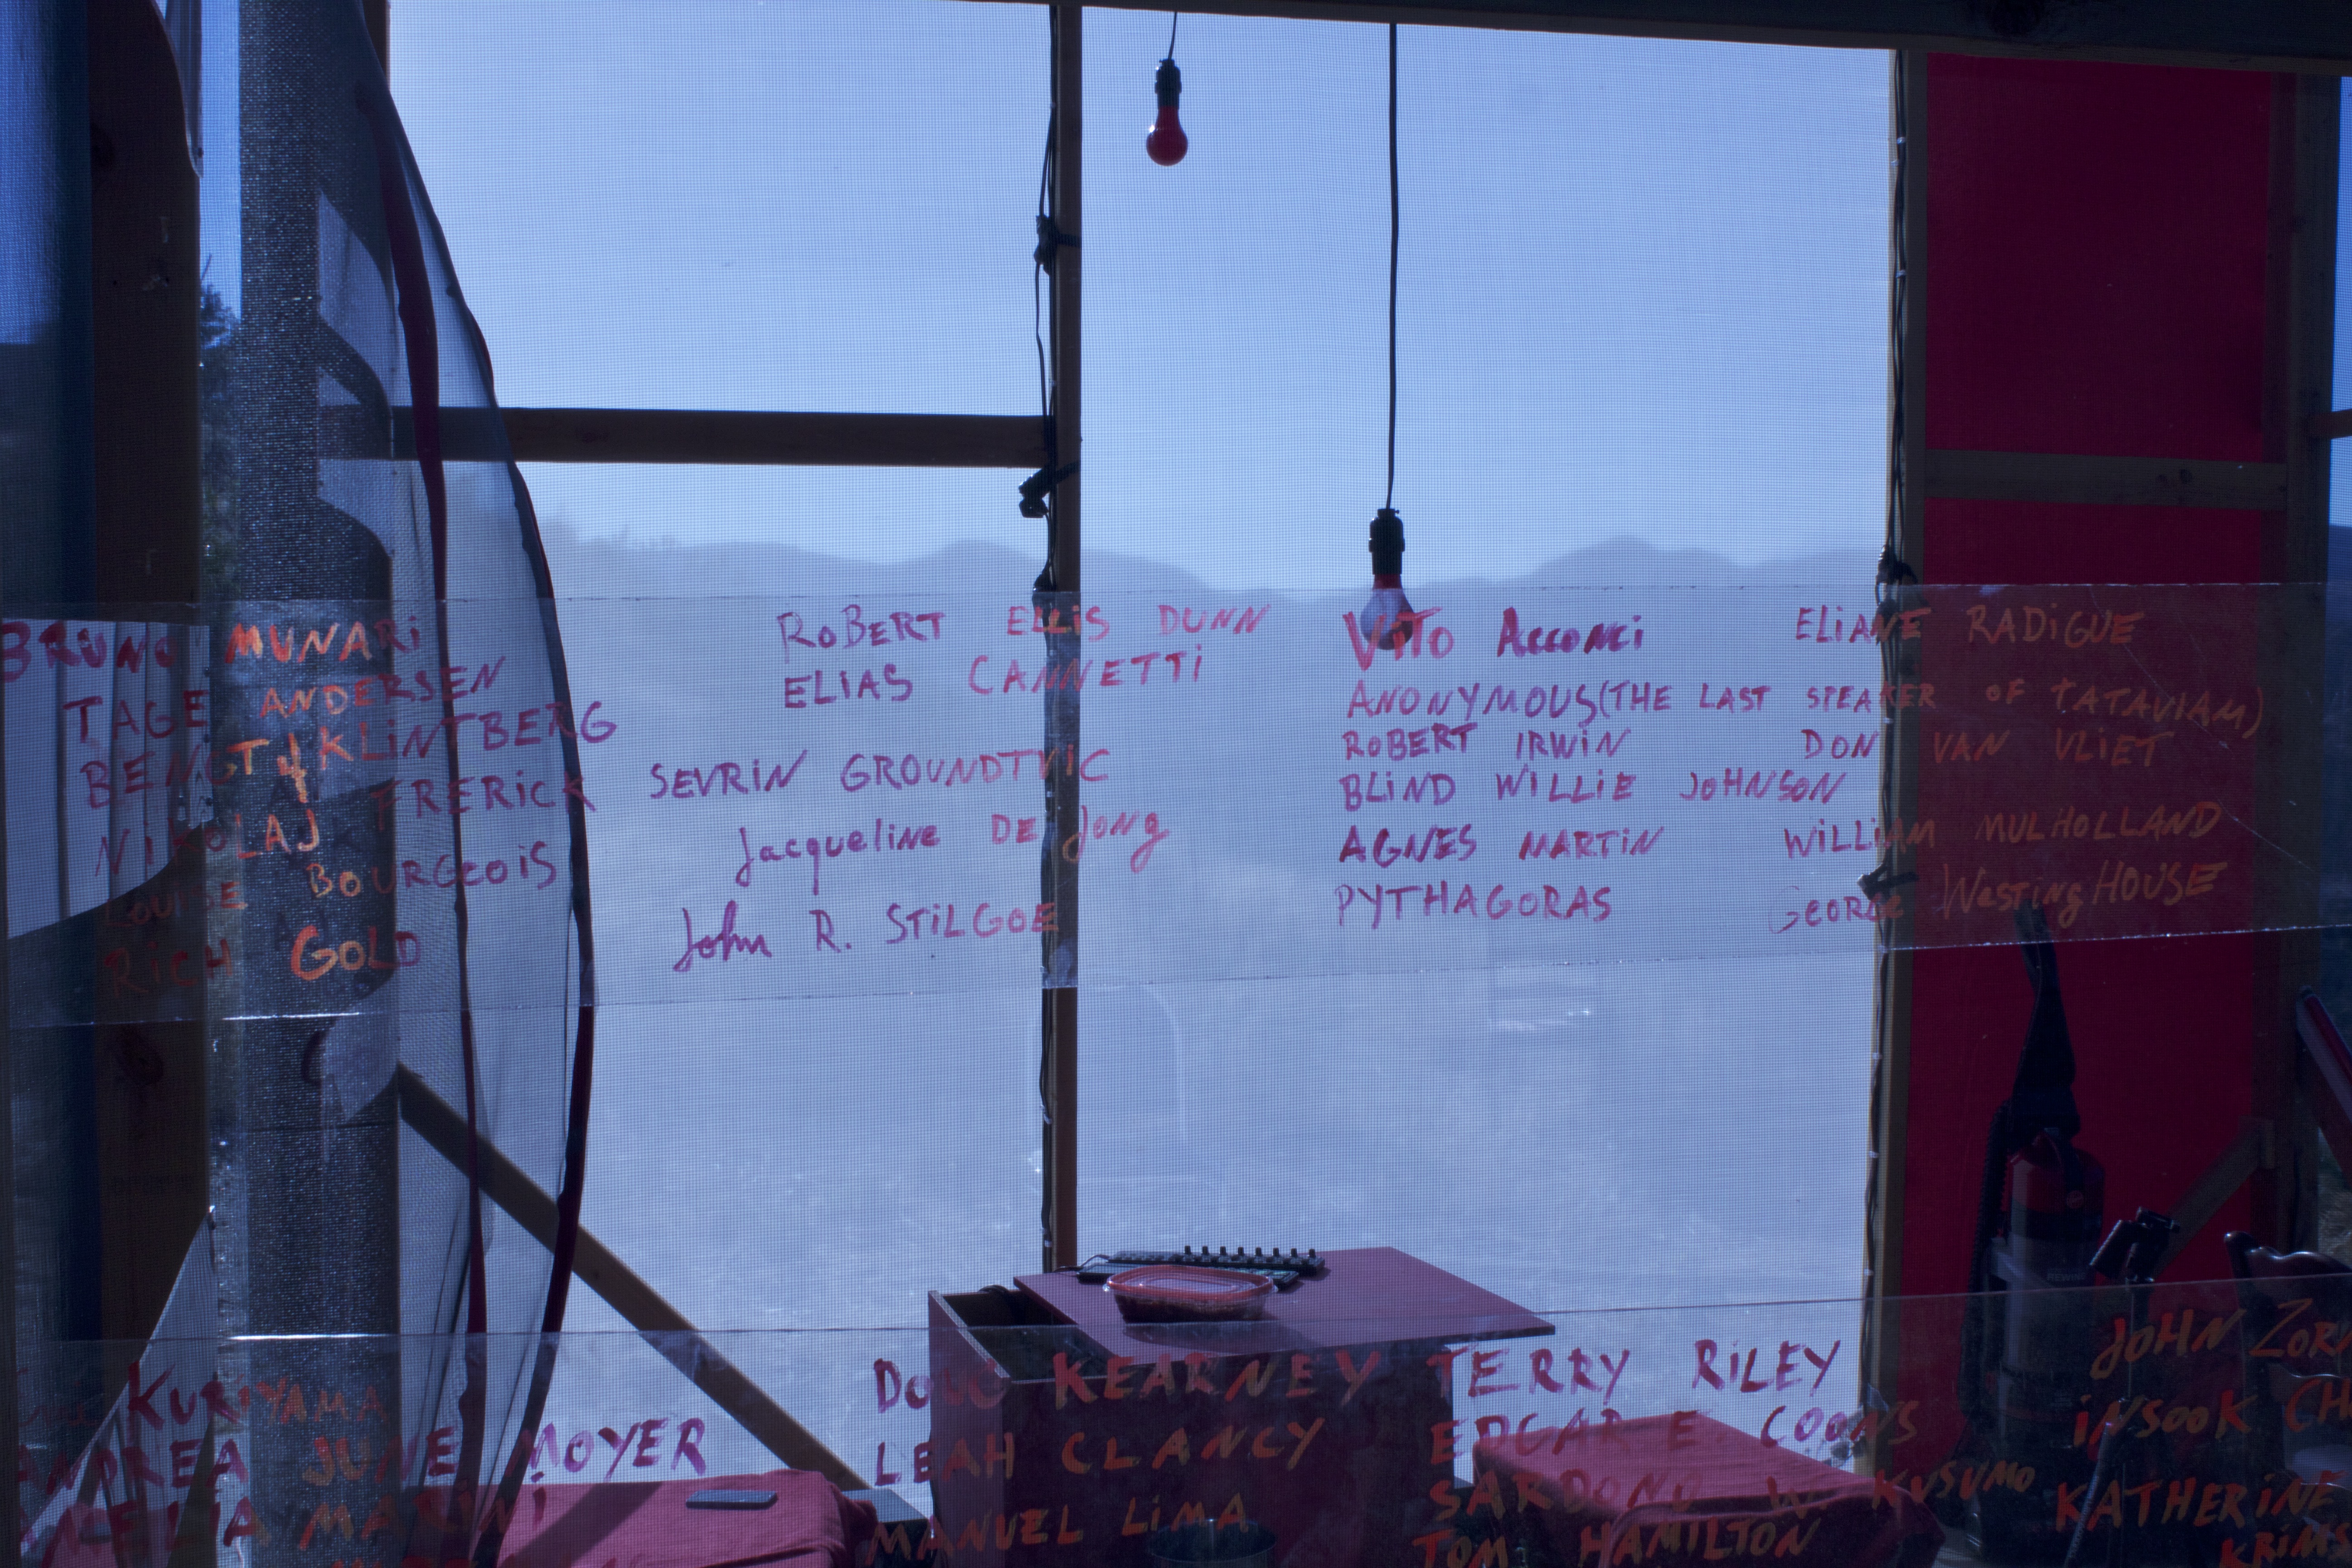 BRUNO MUNARi
TAGE ANDERSEN
BENGT af KLiNTBERG
NiKOLAJ FRERiCK
LOUiSE BOURGEOiS
RiCH GOLD
ROBERT ELLiS DUNN
ELiAS CANNETTi
SEVRiN GROUNDTViC
Jacqueline DE Jong
John R. STiLGOE
ViTO Acconci
ANONYMOUS (THE LAST SPEAKER OF TATAVIAM)
ROBERT IRWiN
BLiND WiLLiE JOHNSON
AGNES MARTiN
PYTHAGORAS
ELiANE RADiGUE
DON VAN VLiET
WiLLiAM MULHOLLAND
GEORGE WestingHOUSE
KURiYAMA
ANDREA JUNE MOYER
AMELiA MARiNi
DOUG KEARNEY
LEAH CLANCY
MANUEL LiMA
TERRY RiLEY
EDGAR E. COONS
SARDONO W. KUSUMO
TOM HAMiLTON
JOHN ZOR
iNSOOK CH
KATHERiNE